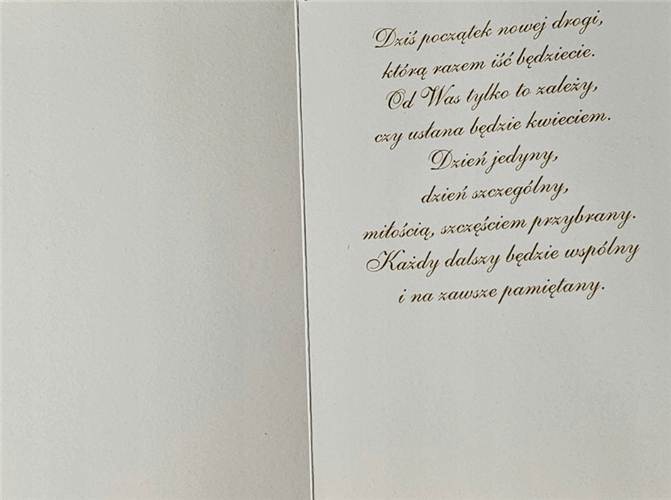 Dziś początek nowej drogi,
którą razem iść będziecie.
Od Was tylko to zależy,
czy usłana będzie kwieciem.
Dzień jedyny,
dzień szczególny,
miłością, szczęściem przybrany.
Każdy dalszy będzie wspólny
i na zawsze pamiętany.